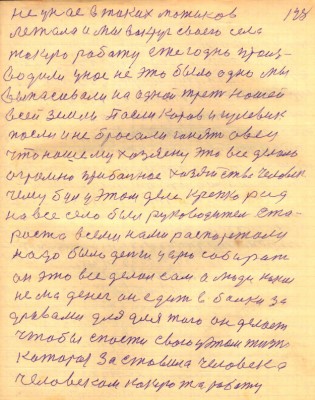 не у нас в таких мотиков 133
летала и мы вокруг своего села
такую работу ежегодно произ-
водили у нас не это было одно мы
выпасывали на одной трет нашей
всей земли пасли каров и гулевик
пасли и не бросали ганят овец
что нашему хозяену это все делать
огромно прибачное хозяйство человек
чему был у этом деле крепко рад
на все село был руководител ста-
роста всеми нами распоряжали
надо было денги царю собират
он это все делал сам а люди каки
не ма денег он едит в балки за
дровами для для того он делает
чтобы спасти свою у том жизнь
катороя заставила человека
человеком какую то работу